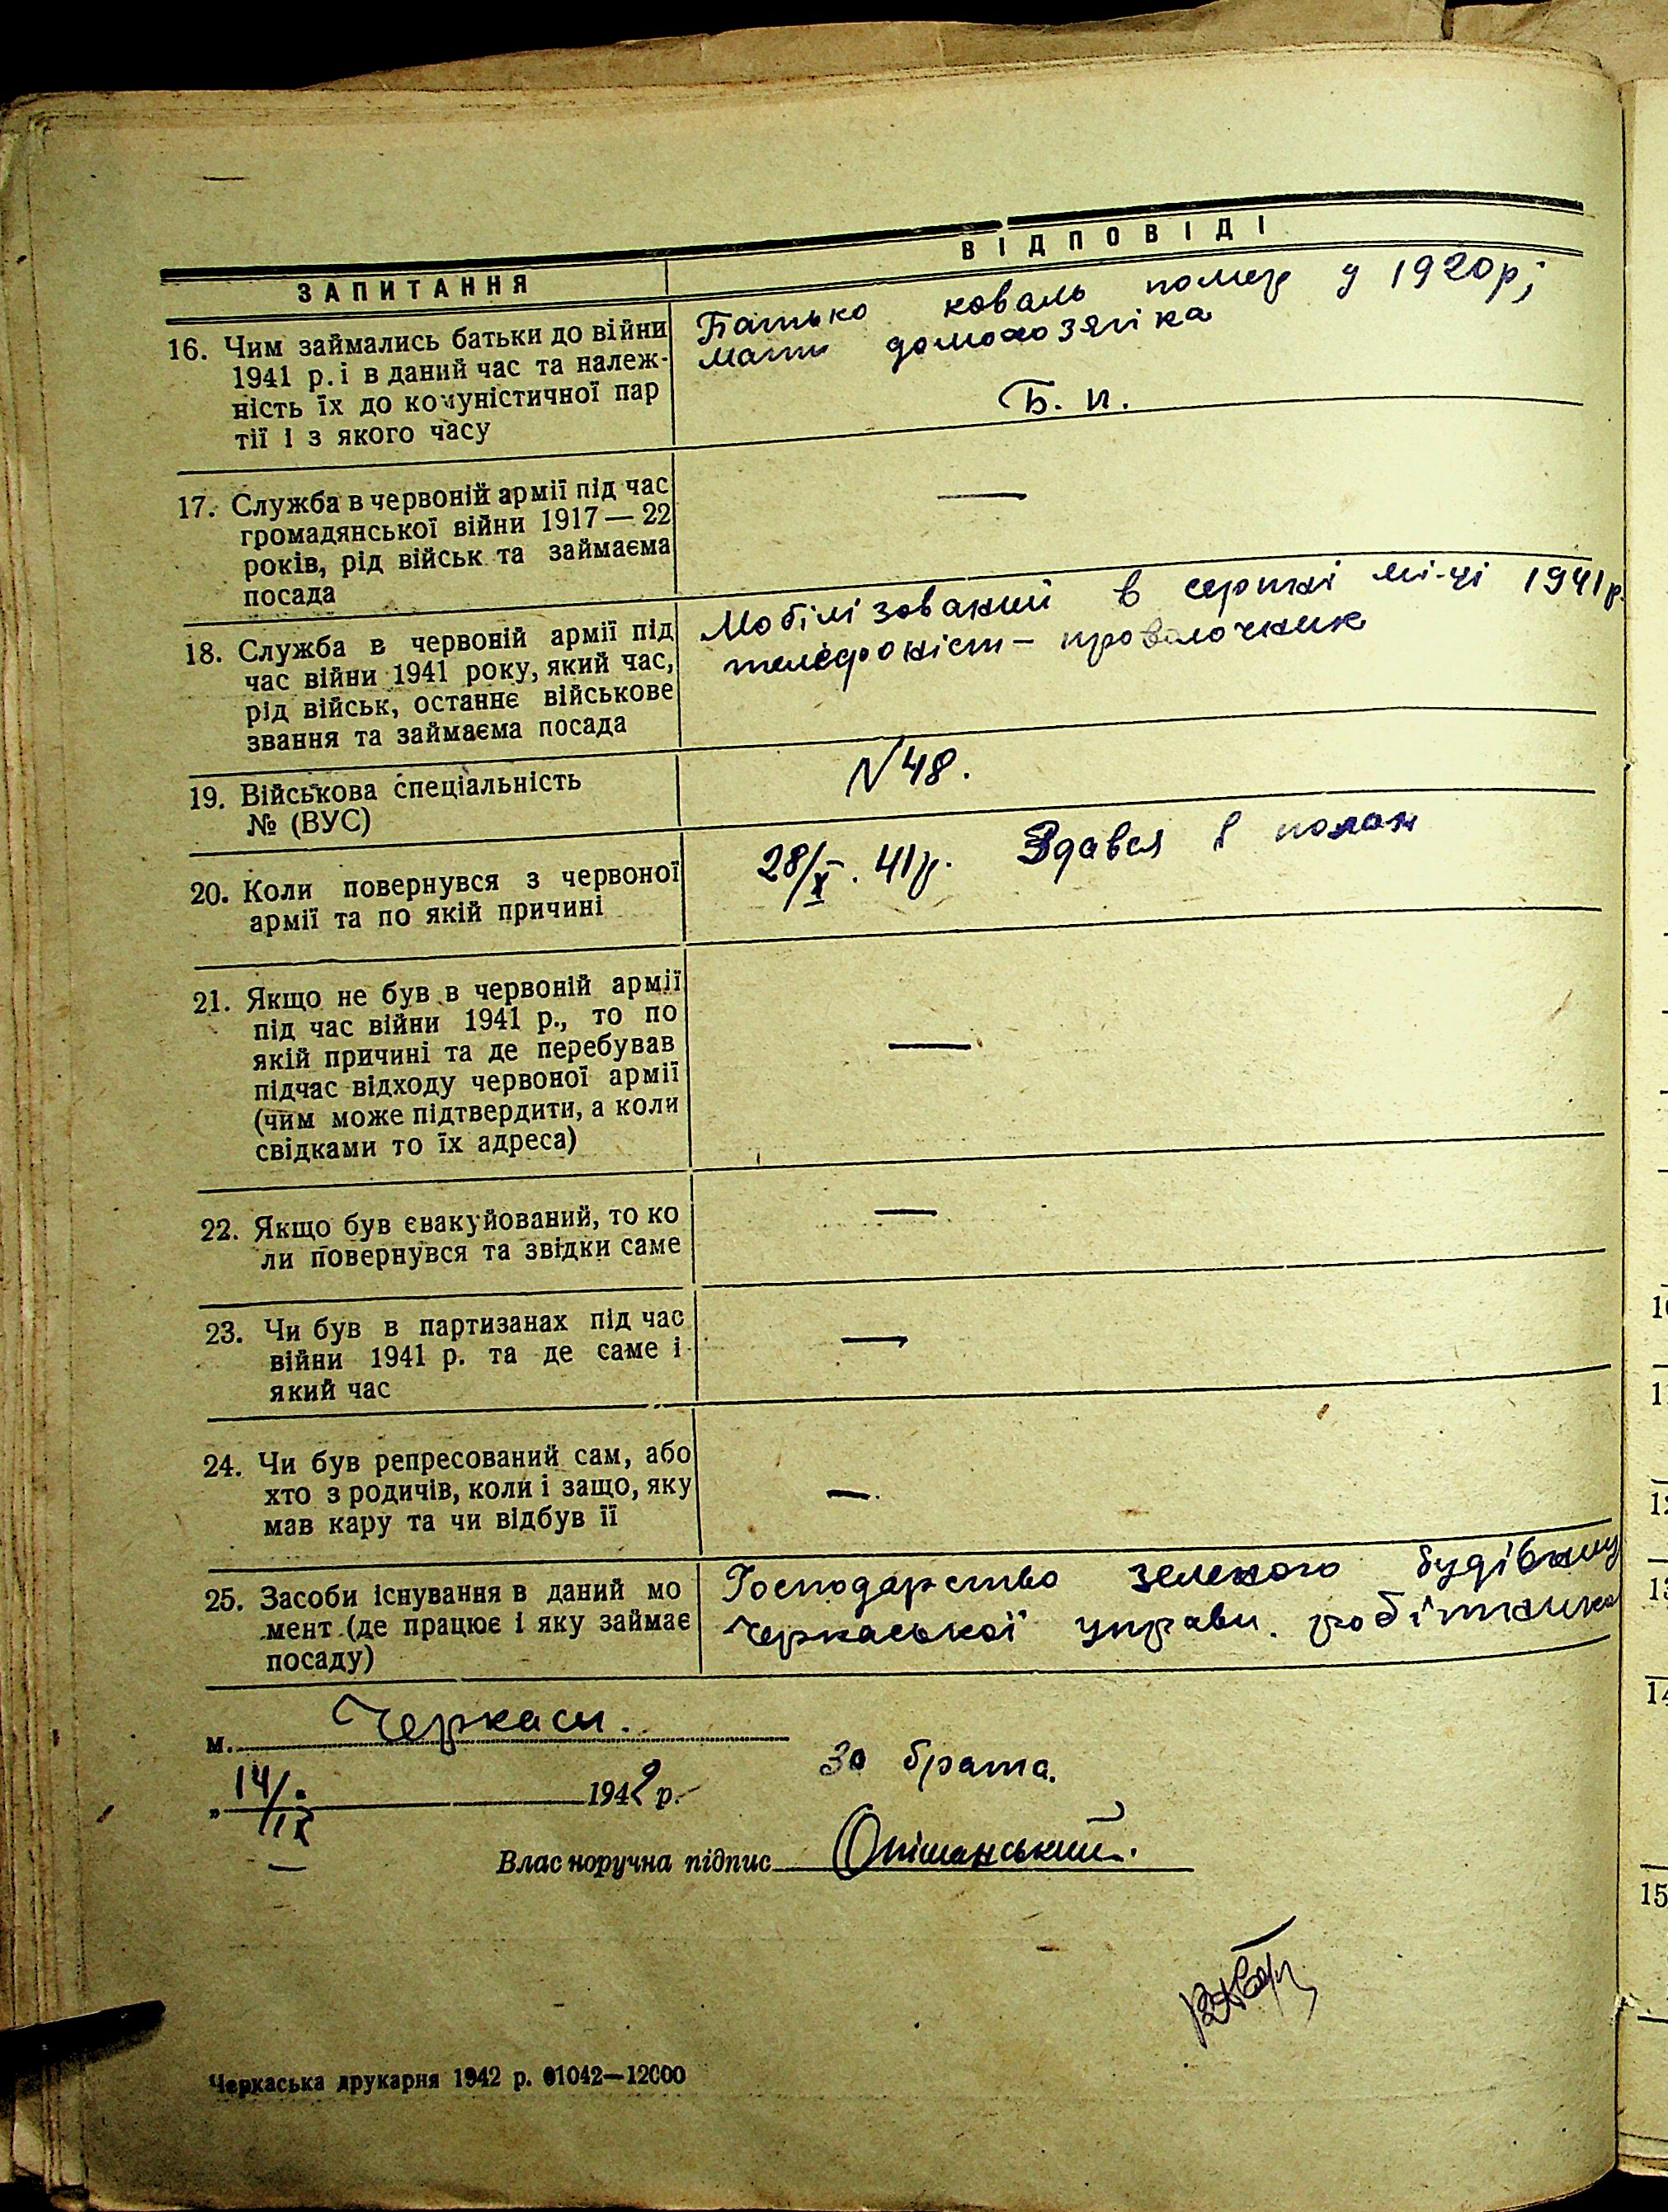 ЗАПИТАННЯ
ВІДПОВІДІ
16. Чим займались батьки до війни
1941 р. і в даний час та належ-
ність їх до комуністичної пар
тії і з якого часу
Батько коваль помер у 1920р;
мати домохозяіка
Б. п.
17. Служба в червоній армії під час
громадянської війни 1917—22
років, рід військ та займаєма
посада
—
18. Служба в червоній армії під
час війни 1941 року, який час,
рід військ, останнє військове
звання та займаєма посада
Мобілізований в серпні мі-ці 1941р.
телефоніст – проволочник
19. Військова спеціальність
№ (ВУС)
N 48.
20. Коли повернувся з червоної
армії та по якій причині
28/X. 41р. Здався в полон
21. Якщо не був в червоній армії
під час війни 1941 р., то по
якій причині та де перебував
підчас відходу червоної армії
(чим може підтвердити, а коли
свідками то їх адреса)
—
22. Якщо був євакуйований, то ко
ли повернувся та звідки саме
—
23. Чи був в партизанах під час
війни 1941 р. та де саме і
який час
—
24. Чи був репресований сам, або
хто з родичів, коли і защо, яку
мав кару та чи відбув її
—.
25. Засоби існування в даний мо
мент (де працює і яку займає
посаду)
Господарство зеленого будівницт
Черкаської управи. робітника
м. Черкаси.
„ 14/IX 1942 р.
За брата.
Власноручна підпис Опішанський.
Черкаська друкарня 1942 р. 01042—12000